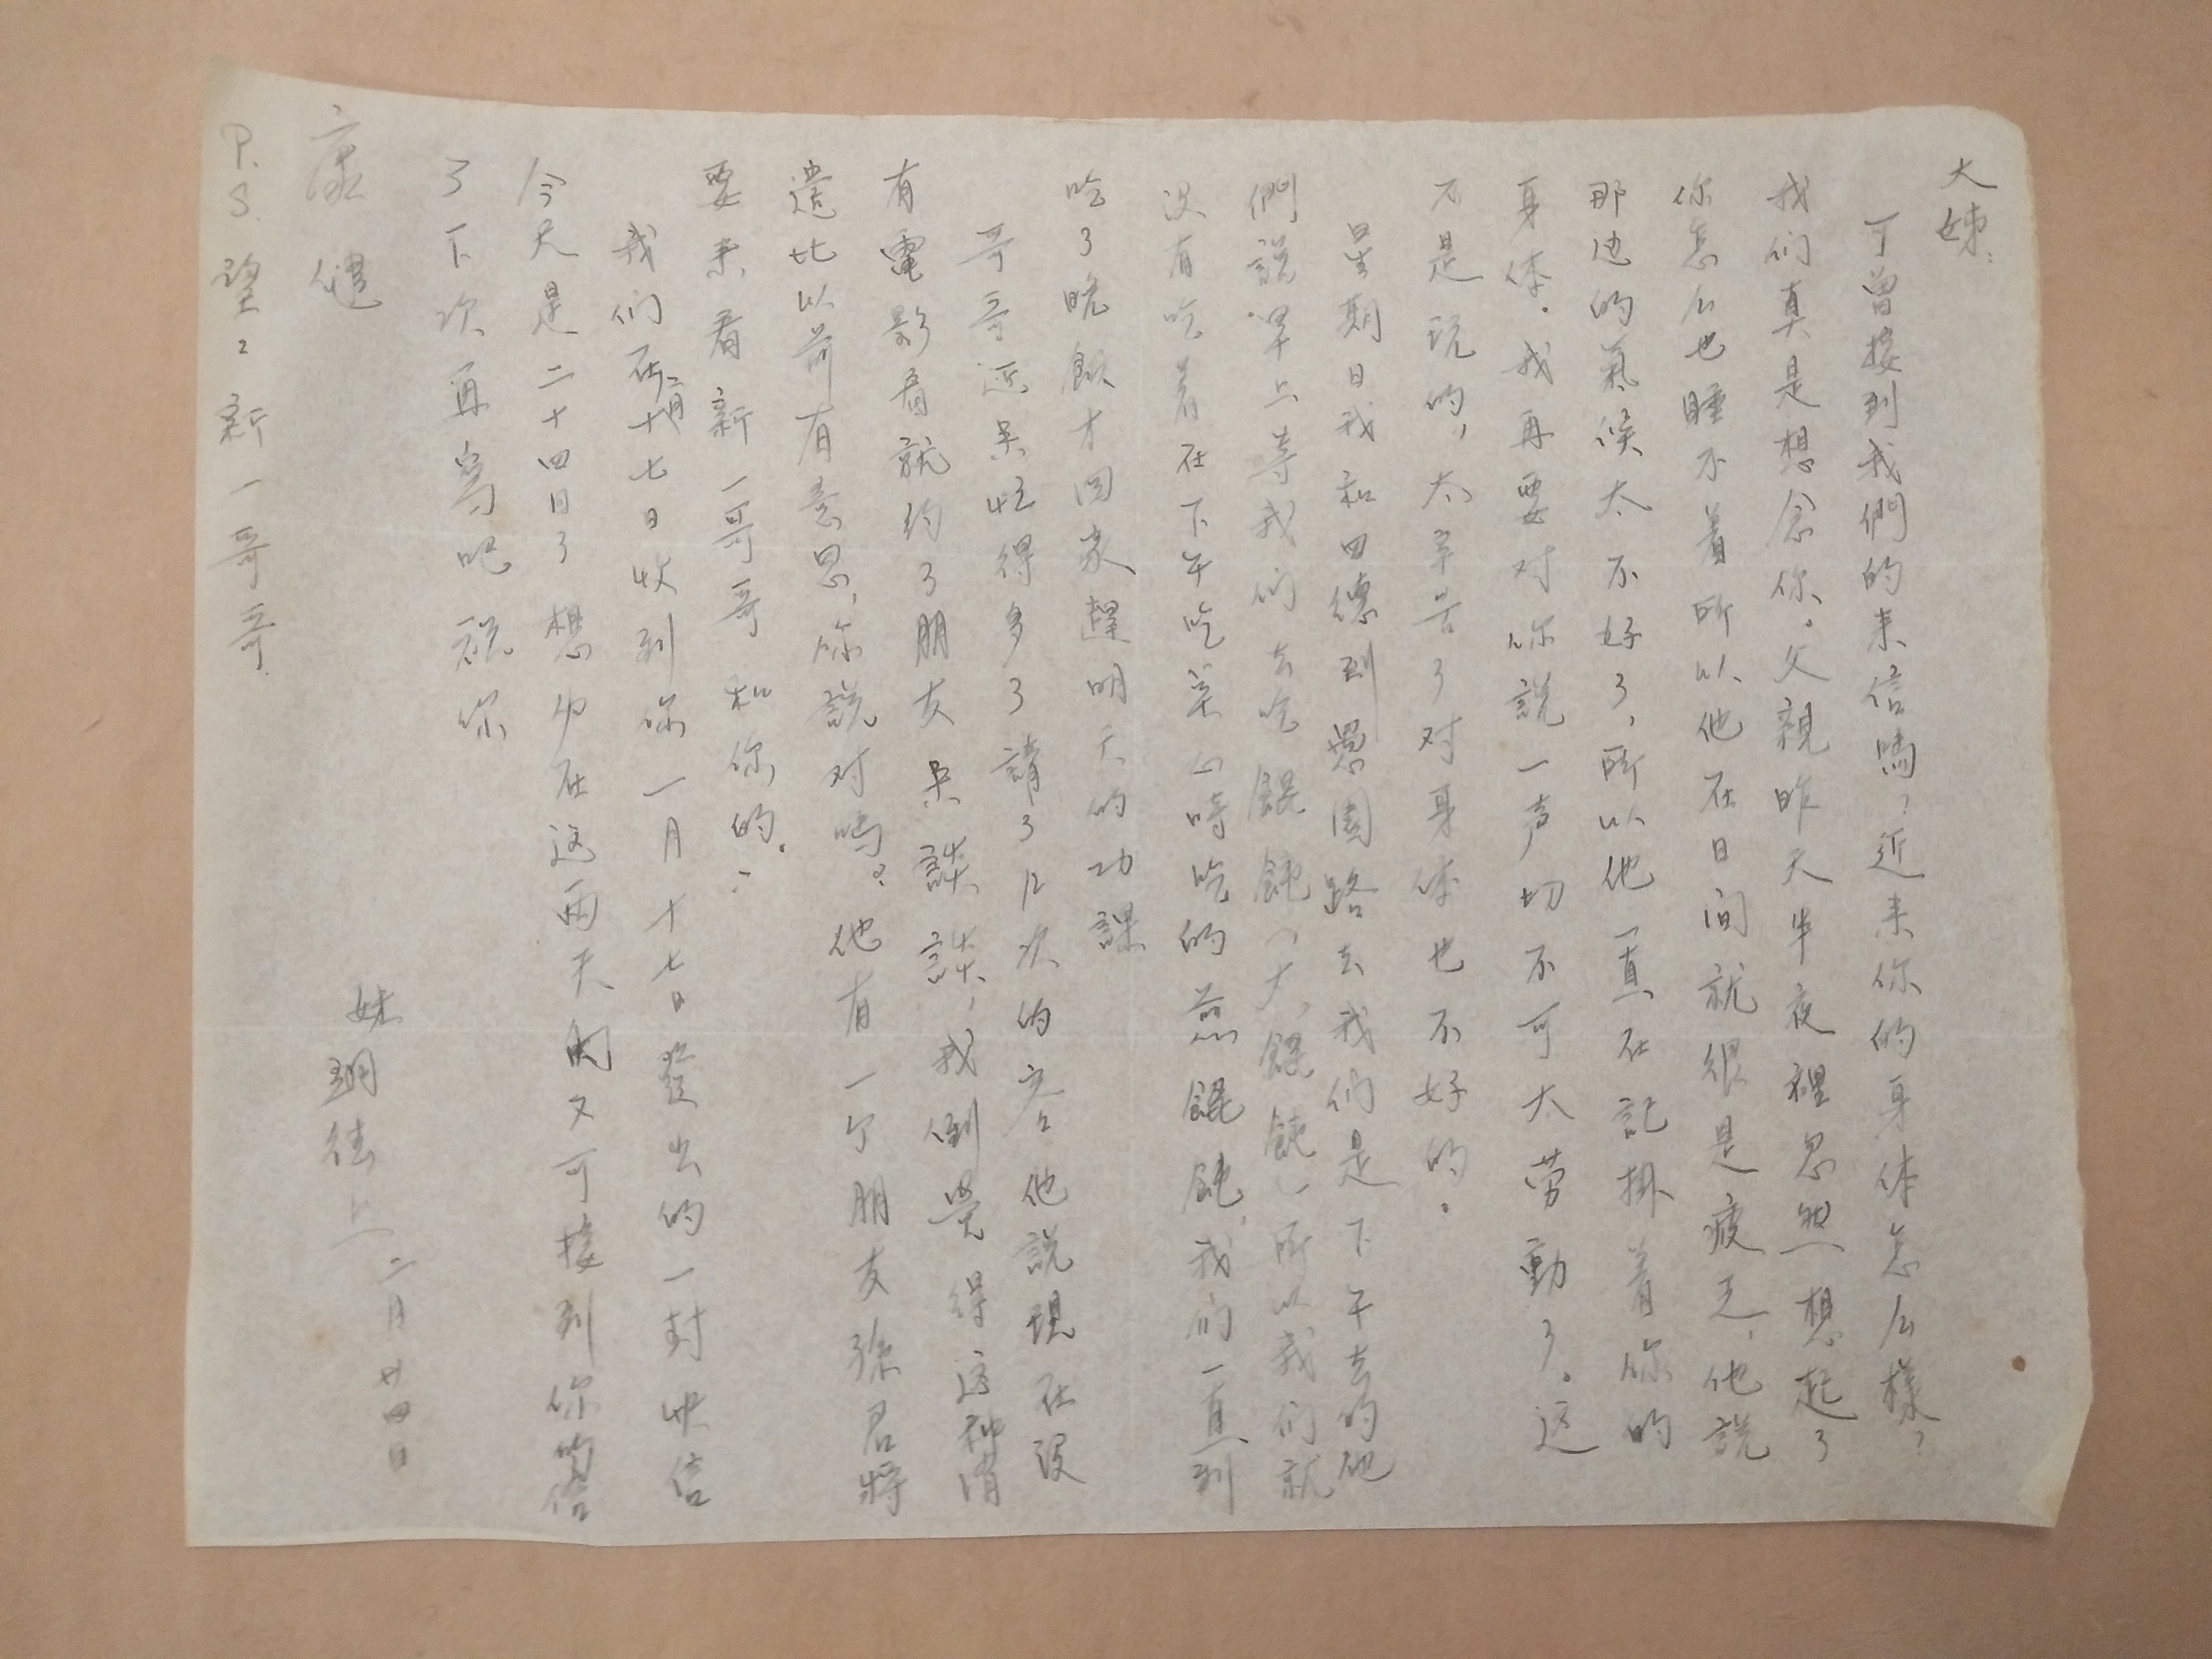 大姊：
可曾接到我們的来信嗎？近来你的身体怎么樣？
我们真是想念你，父親昨天半夜裡忽然想起了
你怎么也睡不着所以他在日间就很是疲乏，他説
那边的氣候太不好了，所以他一直在記掛着你的
身体．我再要对你説一声切不可太劳動了．这
不是玩的，太辛苦了对身体也不好的．
星期日我和四德到愚園路去我们是下午去的他
們説早上等我们去吃餛飩（大餛飩）所以我们就
没有吃着在下午吃菜心時吃的煎餛飩，我们一直到
吃了晚飯才回家趕明天的功課
哥哥近来忙得多了請了几次的客他説現在没
有電影看就约了朋友来談談，我倒覺得这种消
遣比以前有意思，你説对嗎？他有一个朋友張君將
要来看新一哥哥和你的．
我们在二月十七日收到你一月十七日發出的一封快信
今天是二十四日了想必在这两天内又可接到你的信
了下次再寫吧祝你
康健
妹 上 二月廿四日
P.S. 望々新一哥哥．